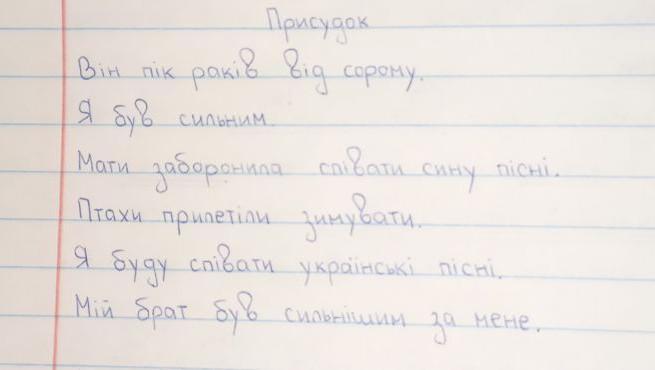 Присудок
Він пік раків від сорому.
Я був сильним.
Мати заборонила співати сину пісні.
Птахи прилетіли зимувати.
Я буду співати українські пісні.
Мій брат був сильнішим за мене.